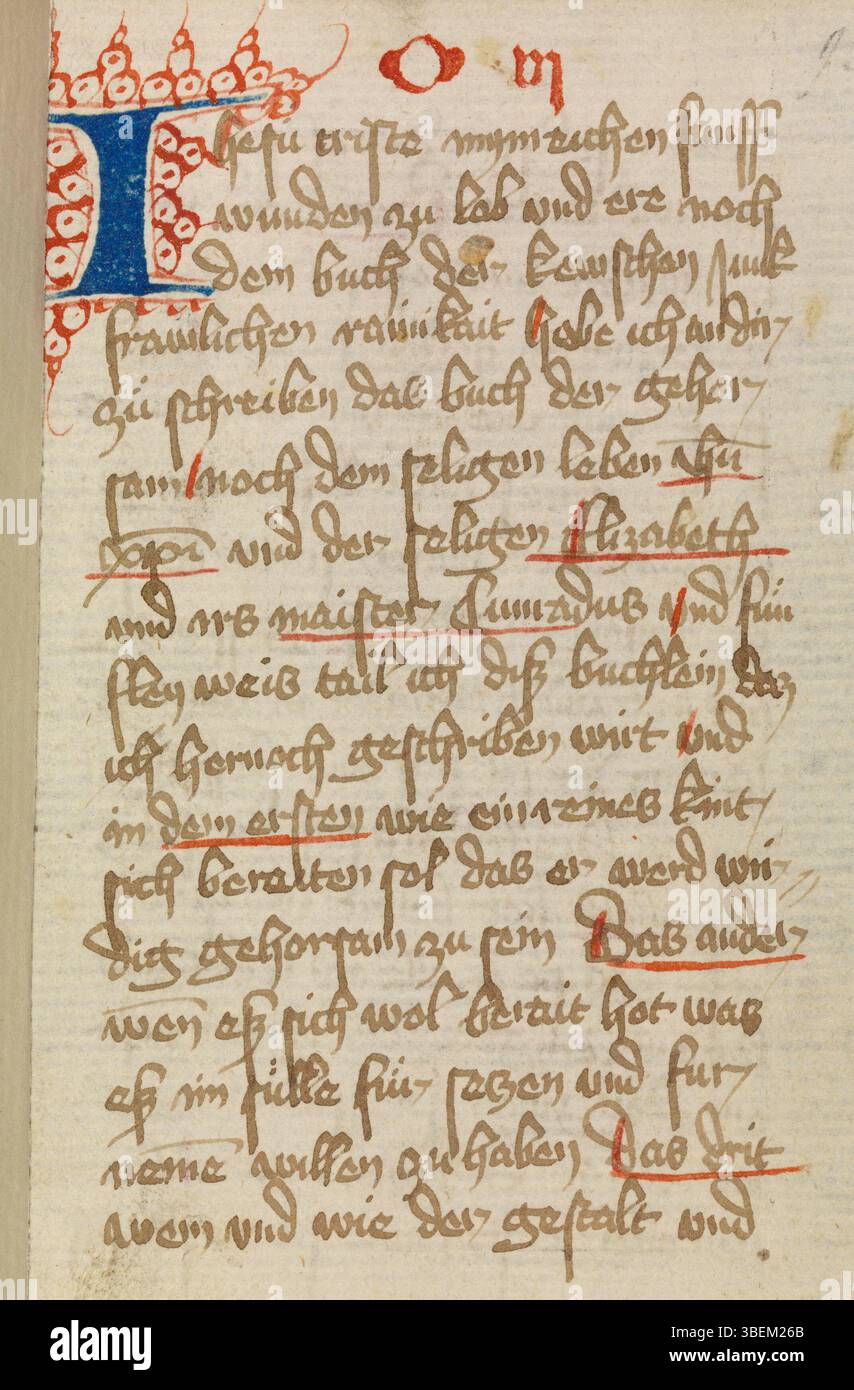 O VI
Ihesu criste mynreichen funff
wunden zu lob vnd ere noch
dem buch der kewschen Junk
frawlichen rainikait hebe ich an dir
zu schreiben das buch der gehor
sam noch dem seligen leben ihu
xpi vnd der seligen Elizabeth
vnd irs maister Cunradus vnd fun
fley weis tail ich disz buchlein daz
ich hernoch geschriben wirt vnd
in dem ersten wie ein reines kint
sich beraiten sol das er werd wir
dig gehorsam zu sein Das ander
wen esz sich wol berait hot was
esz im sulle fur seczen vnd fur
neme willen zu haben Das drit
wem vnd wie der gestalt vnd
alamy
Image ID: 3BEM26B
www.alamy.com